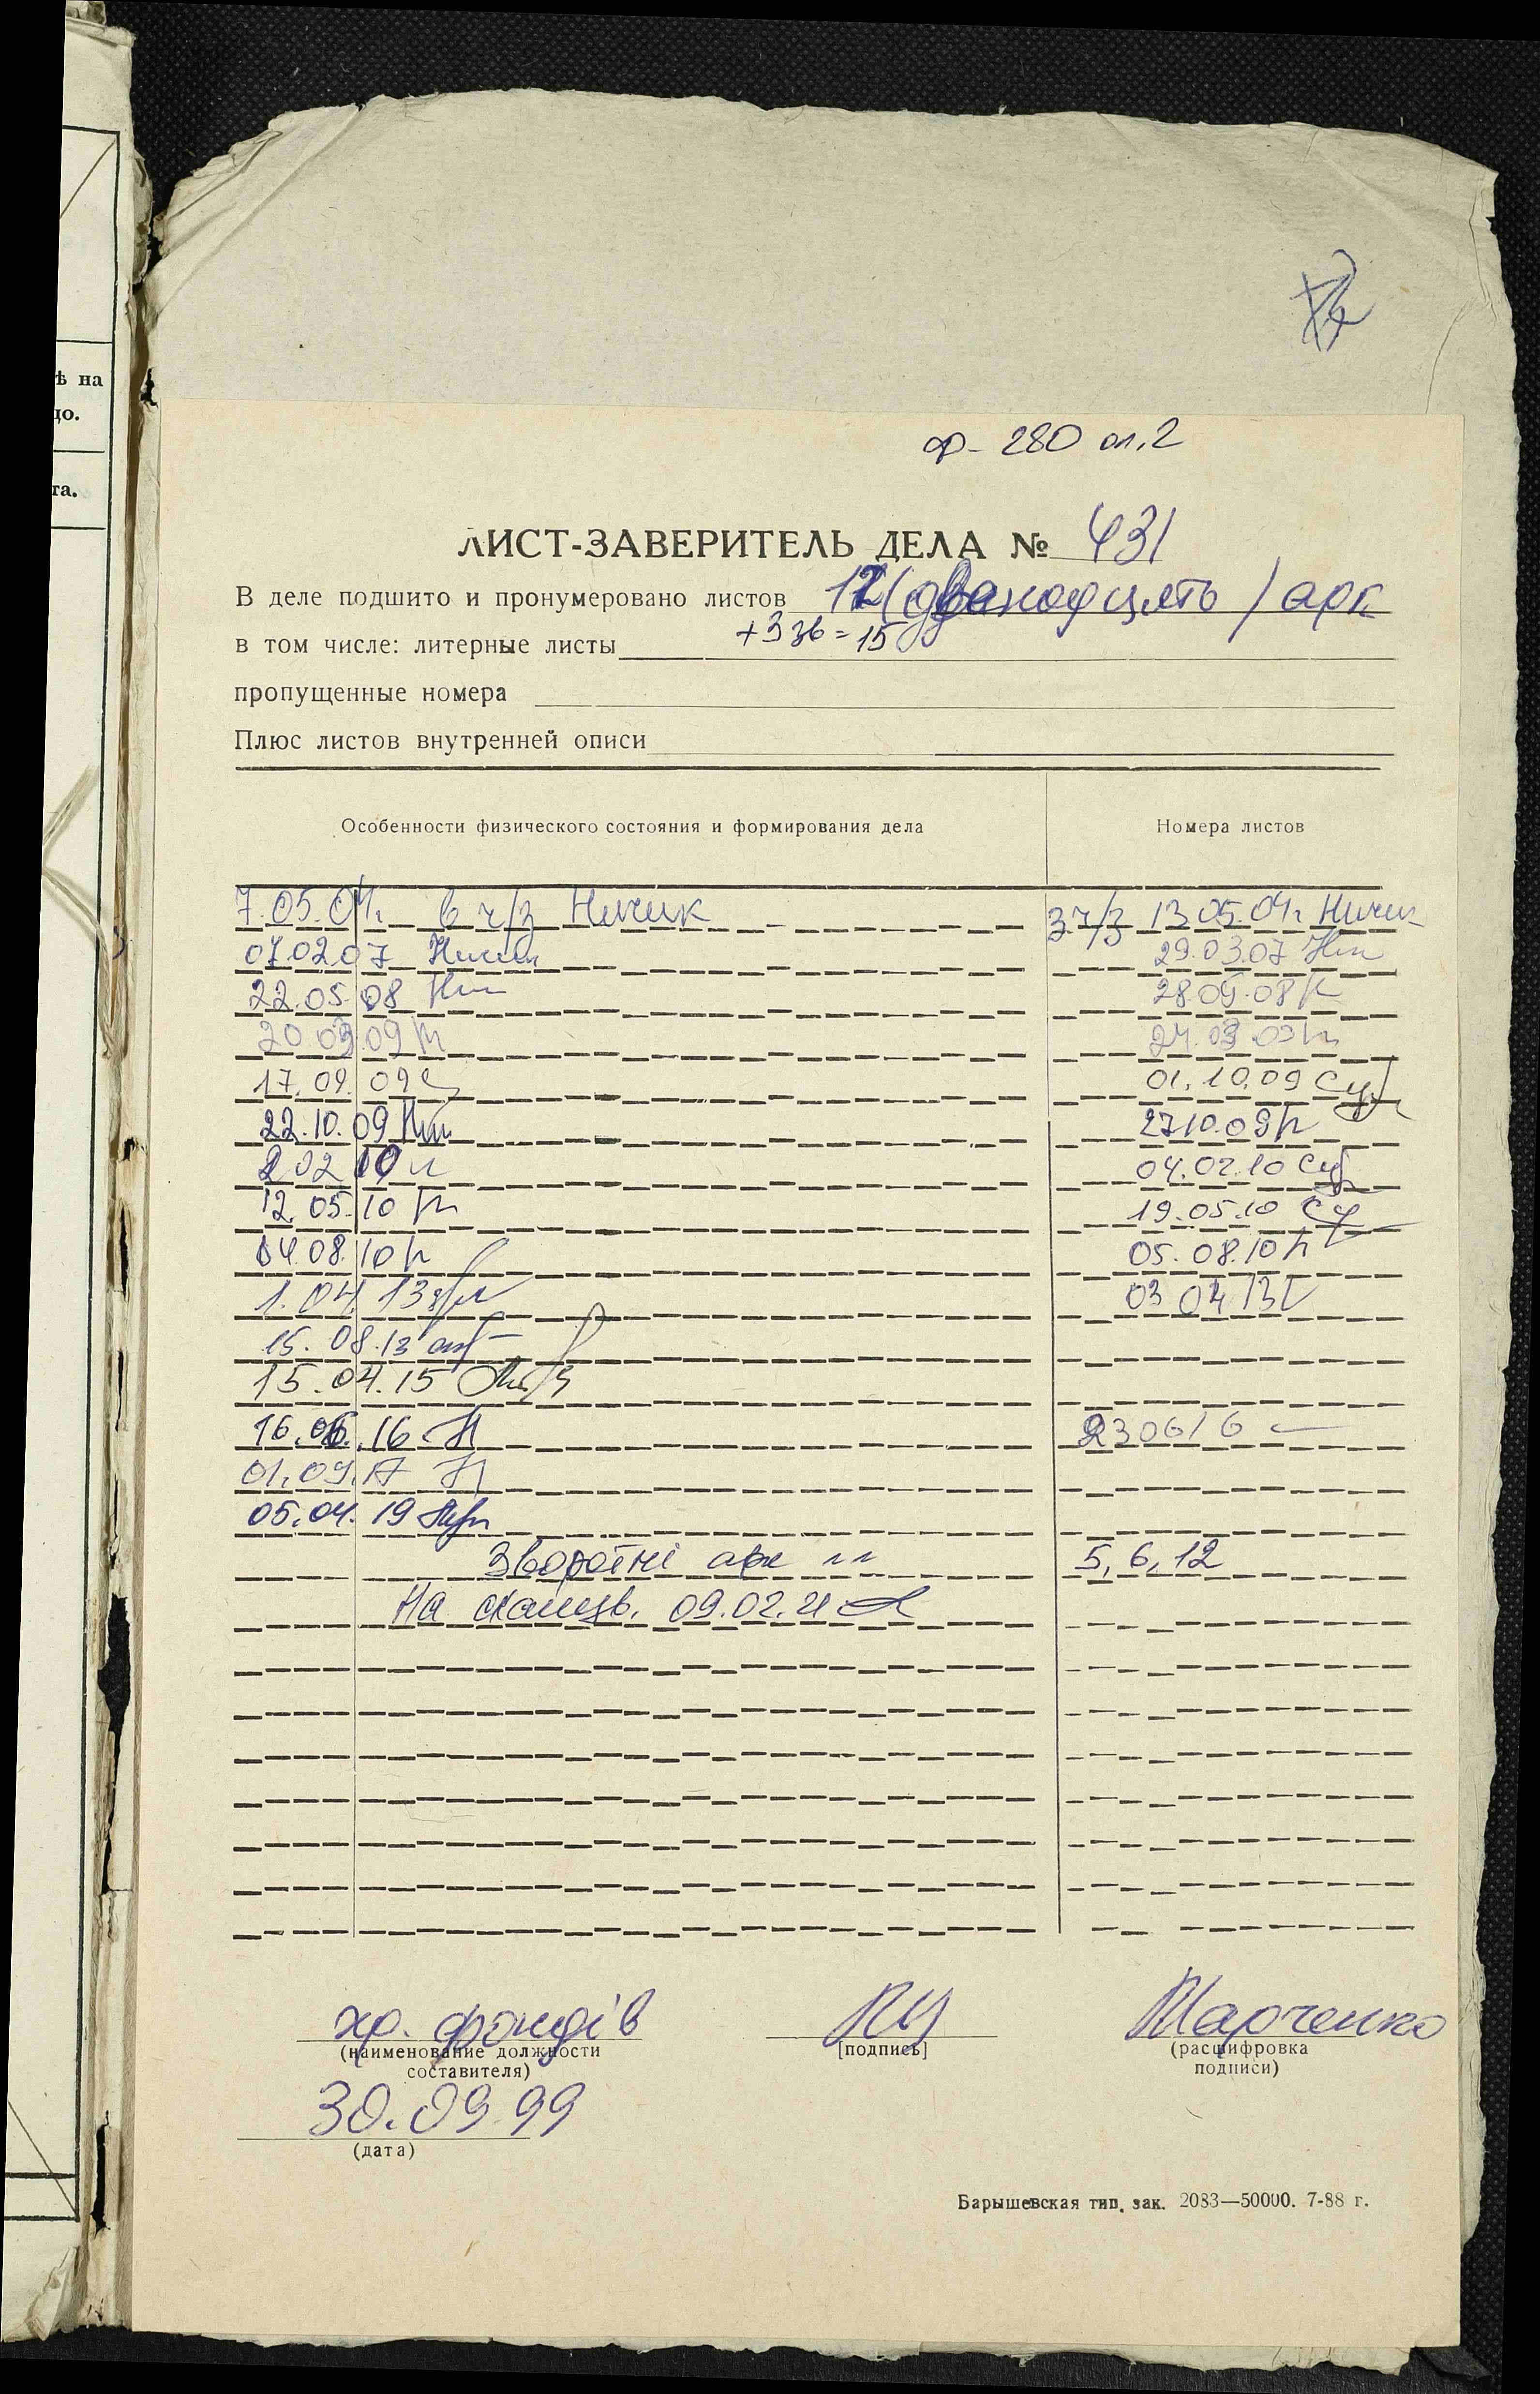 ѣ на
до.
та.
ф- 280 оп. 2
ЛИСТ-ЗАВЕРИТЕЛЬ ДЕЛА № 431
В деле подшито и пронумеровано листов 12 (дванадцять) арк
+ 3 зв = 15
в том числе: литерные листы
пропущенные номера
Плюс листов внутренней описи
Особенности физического состояния и формирования дела Номера листов
7.05.04г. в ч/з Ничик з ч/з 13.05.04г
07.02.07 29.03.07
22.05.08 28.05.08
20.03.09 24.03.09
17.09.09 01.10.09
22.10.09 27.10.09
2.02.10 04.02.10
12.05.10 19.05.10
04.08.10 05.08.10
1.04.13 03.04.13
15.08.13
15.04.15
16.06.16 23.06.16
01.09.17
05.04.19
Зворотні арк 5, 6, 12
На сканув. 09.02.21
хр. фондів Марченко
(наименование должности составителя) [подпись] (расшифровка подписи)
30.09.99
(дата)
Барышевская тип. зак. 2083—50000. 7-88 г.